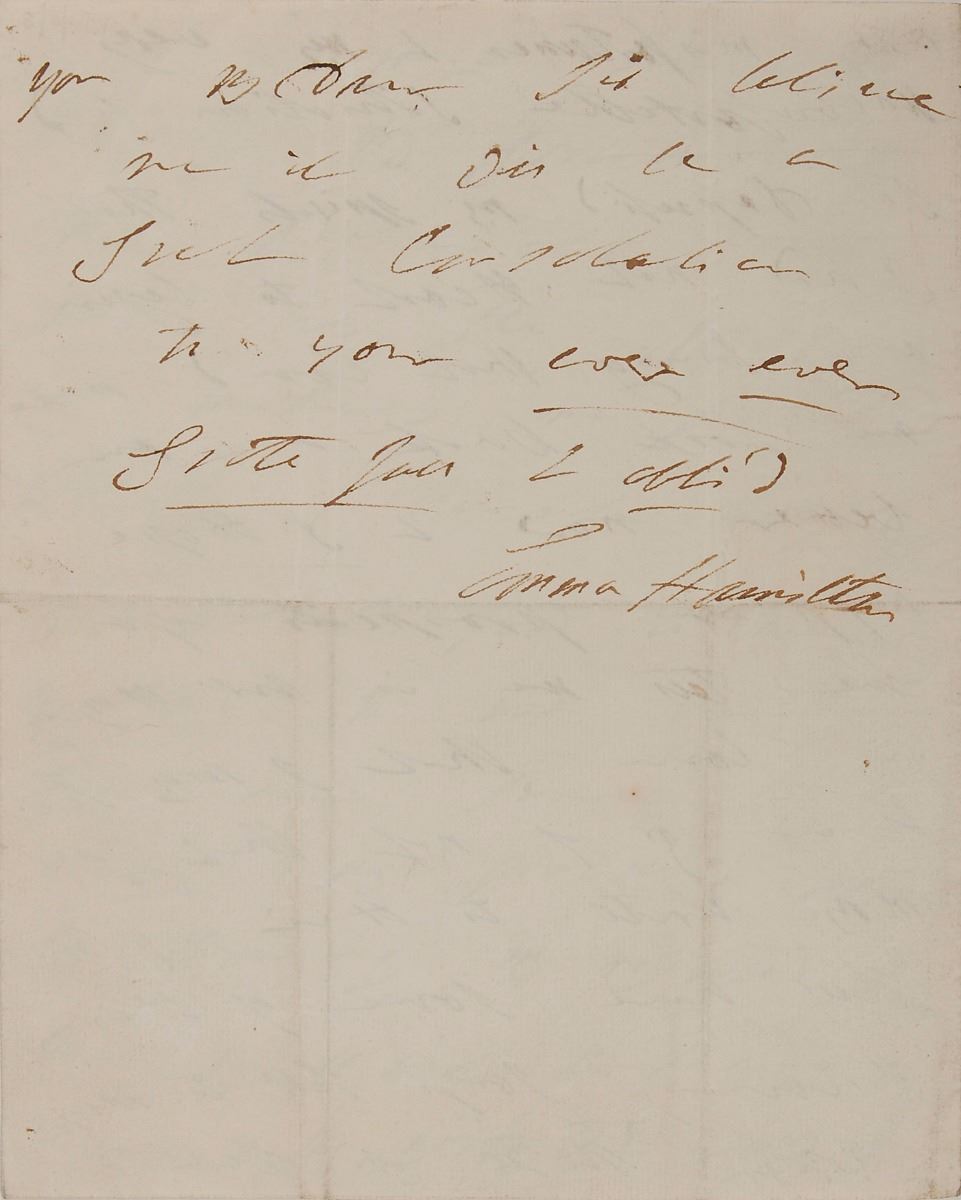 you my Dear Sir believe
me it Will be a
Great Consolation
to your ever ever
Gratefull & obli'd
Emma Hamilton